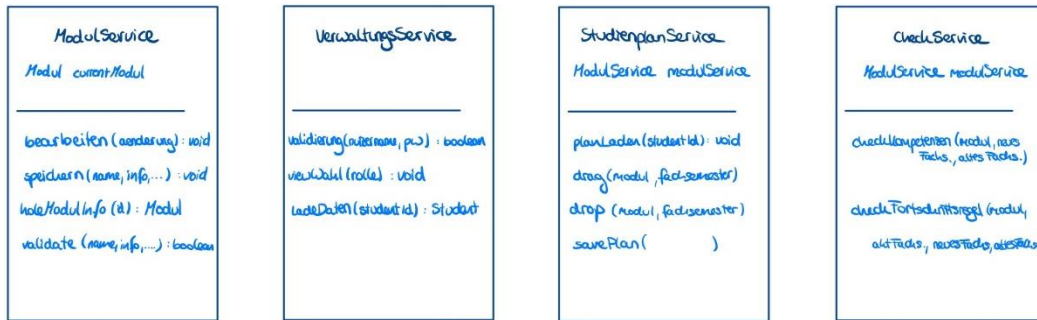 ModulService
Modul currentModul
bearbeiten (aenderung) : void
speichern (name, info, ...) : void
holeModulInfo (id) : Modul
validate (name, info, ....) : boolean
VerwaltungsService
validierung (username, pw) : boolean
viewWahl (rolle) : void
ladeDaten (studentId) : Student
StudienplanService
ModulService modulService
planLaden (studentId) : void
drag (modul, fachsemester)
drop (modul, fachsemester)
savePlan ( )
CheckService
ModulService modulService
checkKompetenzen (modul, neues
Fachs., altes Fachs.)
checkFortschrittsregel (modul,
aktFachs., neuesFachs, altesFachs